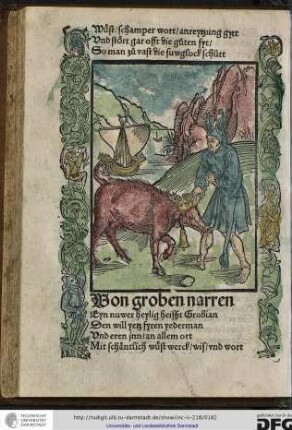 Wůst/schamper wort/anreytzung gytt
Vnd stört gar offt die gůten syt/
So man zů vast die suwglock schütt
Von groben narren
Eyn nuwer heylig heisst Grobian
Den will yetz fyren yederman
Vnd eren jnn/an allem ort
Mit schäntlich wůst werck/wis/vnd wort
TECHNISCHE
UNIVERSITÄT
DARMSTADT
http://tudigit.ulb.tu-darmstadt.de/show/inc-ii-218/0182
Universitäts- und Landesbibliothek Darmstadt
gefördert durch die
DFG